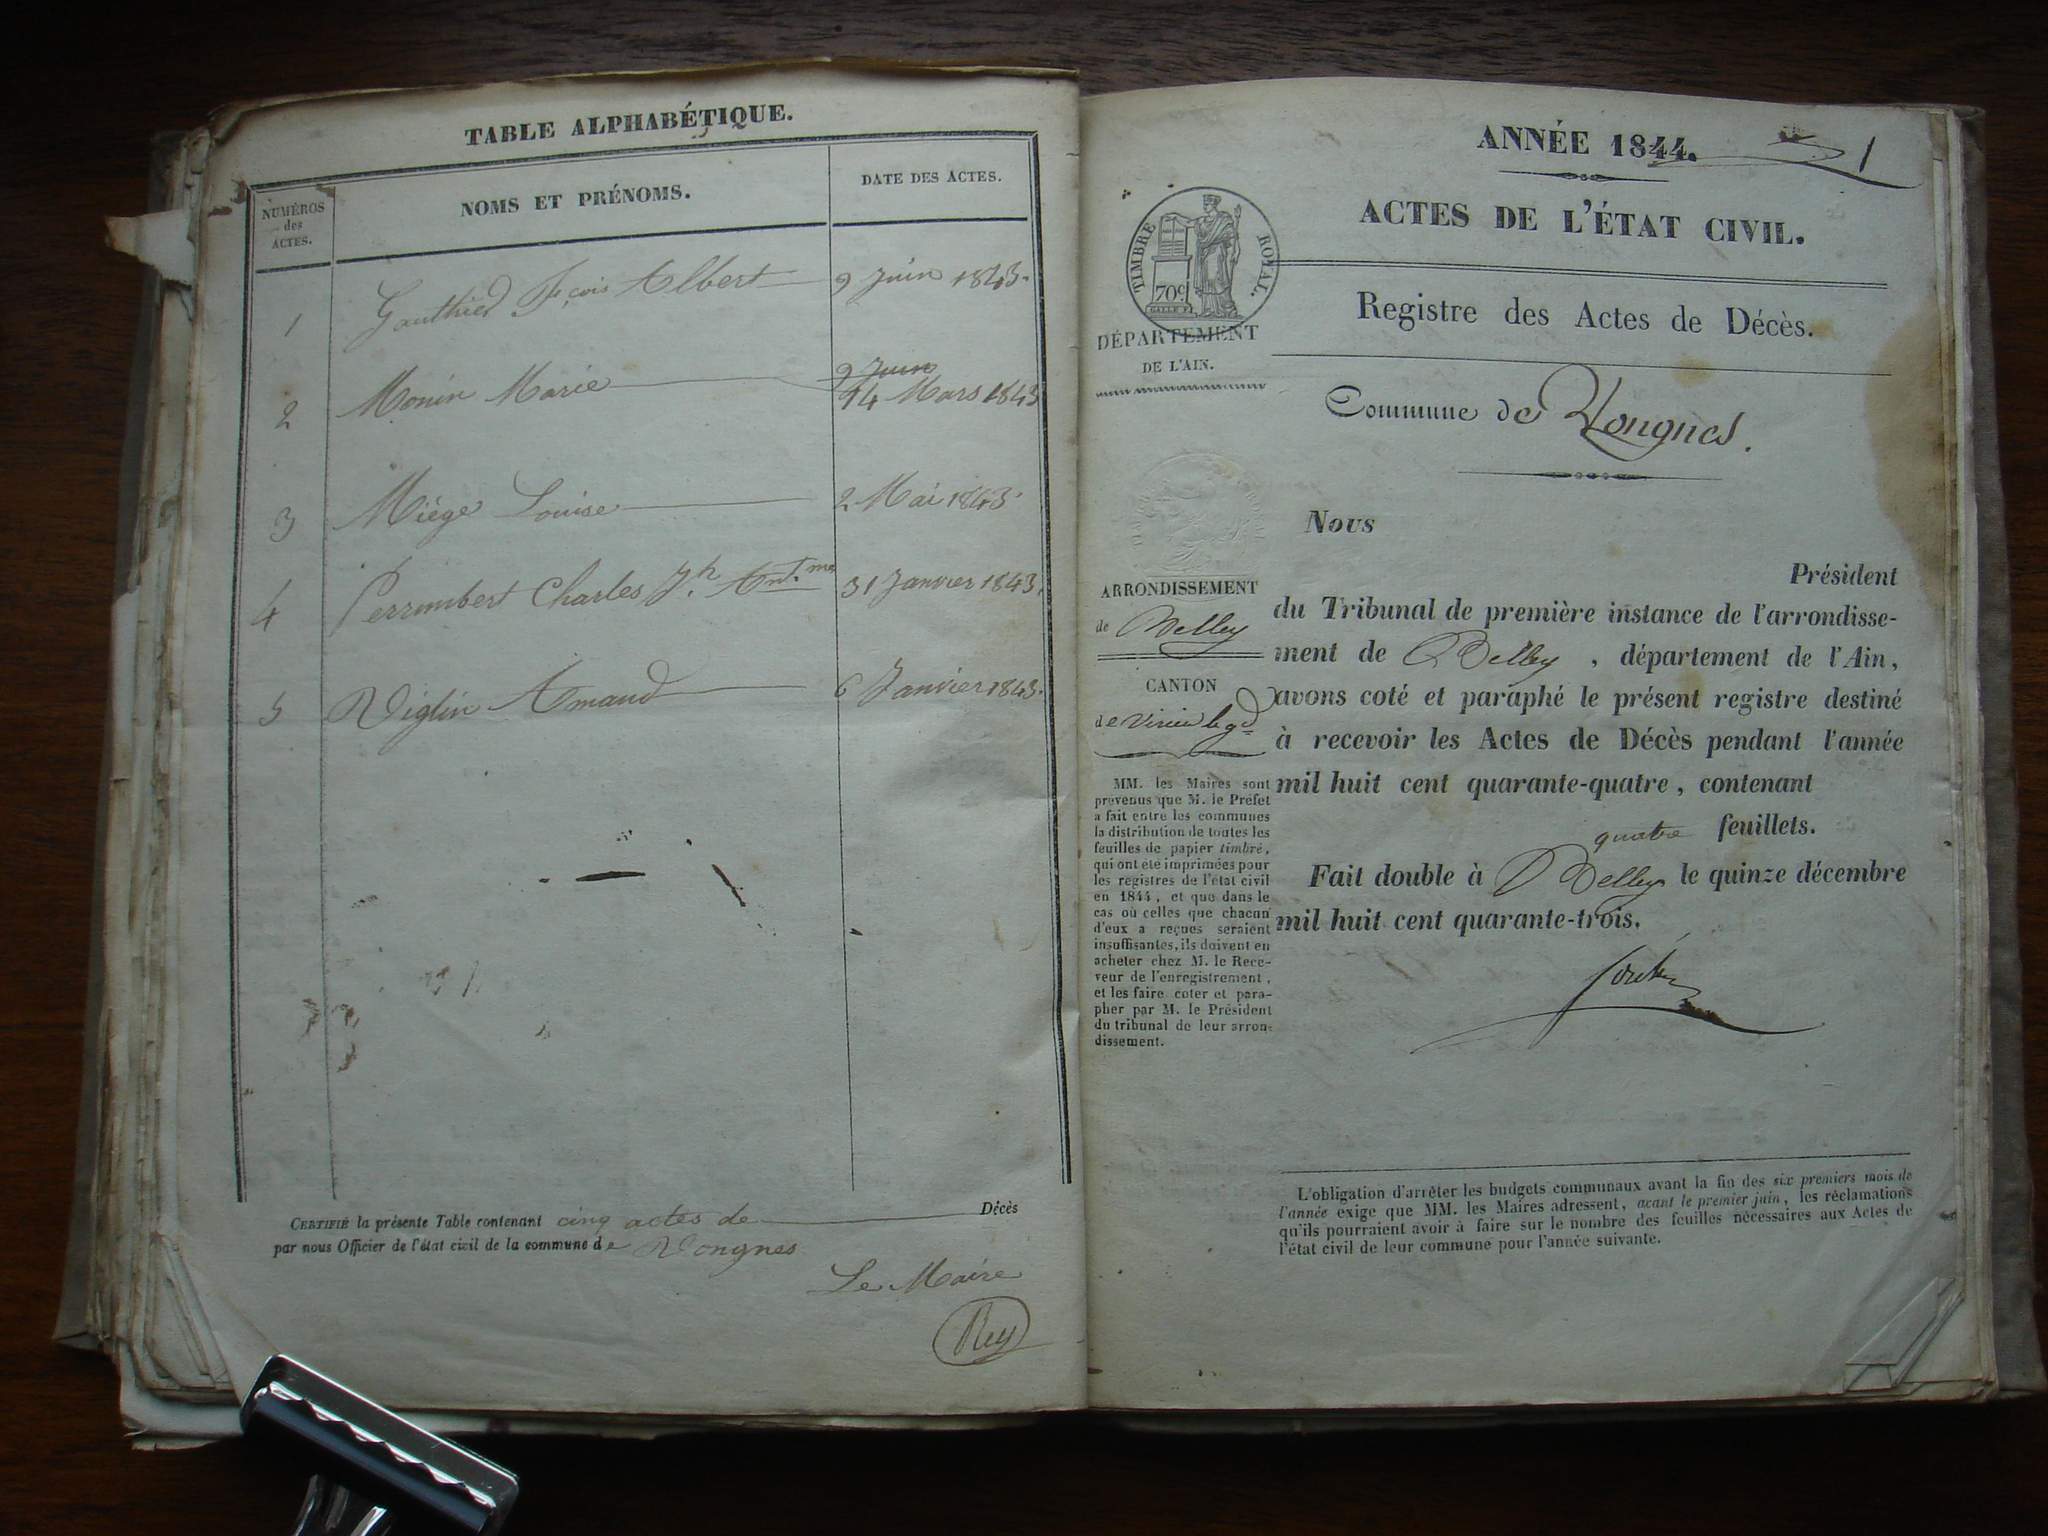 TABLE ALPHABÉTIQUE.
NUMÉROS
des
ACTES.
NOMS ET PRÉNOMS.
DATE DES ACTES.
1 Gauthier Fçois Albert 9 Juin 1843.
9 Juin
2 Monin Marie 14 Mars 1843
3 Miège Louise 2 Mai 1843.
4 Perrimbert Charles Jh. Ant.me 31 Janvier 1843.
5 Viglin Amand 6 Janvier 1843.
CERTIFIÉ la présente Table contenant cinq actes de Décès
par nous Officier de l'état civil de la commune de Vongnes
Le Maire
Rey
ANNÉE 1844. 1
ACTES DE L'ÉTAT CIVIL.
TIMBRE ROYAL.
70c
Registre des Actes de Décès.
DÉPARTEMENT
DE L'AIN.
Commune de Vongnes.
ARRONDISSEMENT
de Belley
CANTON
de Virieu le gd
MM. les Maires sont
prévenus que M. le Préfet
a fait entre les communes
la distribution de toutes les
feuilles de papier timbré,
qui ont été imprimées pour
les registres de l'état civil
en 1844, et que dans le
cas où celles que chacun
d'eux a reçues seraient
insuffisantes, ils doivent en
acheter chez M. le Rece-
veur de l'enregistrement,
et les faire coter et para-
pher par M. le Président
du tribunal de leur arron-
dissement.
Nous
Président
du Tribunal de première instance de l'arrondisse-
ment de Belley, département de l'Ain,
avons coté et paraphé le présent registre destiné
à recevoir les Actes de Décès pendant l'année
mil huit cent quarante-quatre, contenant
quatre feuillets.
Fait double à Belley le quinze décembre
mil huit cent quarante-trois.
L'obligation d'arrêter les budgets communaux avant la fin des six premiers mois de
l'année exige que MM. les Maires adressent, avant le premier juin, les réclamations
qu'ils pourraient avoir à faire sur le nombre des feuilles nécessaires aux Actes de
l'état civil de leur commune pour l'année suivante.